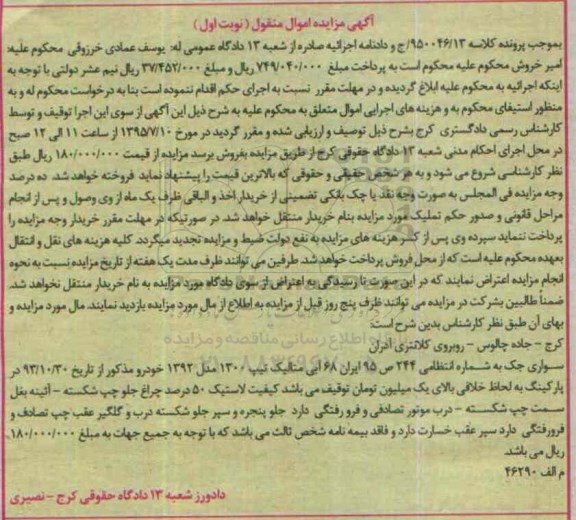 آگهی مزایده اموال منقول (نوبت اول)
بموجب پرونده کلاسه ۹۵۰۰۴۶/۱۳/ج و دادنامه اجرائیه صادره از شعبه ۱۳ دادگاه عمومی له: یوسف عمادی خرزوقی محکوم علیه:
امیر خروش محکوم علیه محکوم است به پرداخت مبلغ ۷۴۹/۰۴۰/۰۰۰ ریال و مبلغ ۳۷/۴۵۲/۰۰۰ ریال نیم عشر دولتی با توجه به
اینکه اجرائیه به محکوم علیه ابلاغ گردیده و در مهلت مقرر نسبت به اجرای حکم اقدام ننموده است بنا به درخواست محکوم له و به
منظور استیفای محکوم به و هزینه های اجرایی اموال متعلق به محکوم علیه به شرح ذیل این آگهی از سوی این اجرا توقیف و توسط
کارشناس رسمی دادگستری کرج بشرح ذیل توصیف و ارزیابی شده و مقرر گردید در مورخ ۱۳۹۵/۷/۱۰ از ساعت ۱۱ الی ۱۲ صبح
در محل اجرای احکام مدنی شعبه ۱۳ دادگاه حقوقی کرج از طریق مزایده بفروش برسد مزایده از قیمت ۱۸۰/۰۰۰/۰۰۰ ریال طبق
نظر کارشناسی شروع می شود و به هر شخص حقیقی و حقوقی که بالاترین قیمت را پیشنهاد نماید فروخته خواهد شد. ده درصد
وجه مزایده فی المجلس به صورت وجه نقد یا چک بانکی تضمینی از خریدار اخذ و الباقی ظرف یک ماه از وی وصول و پس از انجام
مراحل قانونی و صدور حکم تملیک مورد مزایده بنام خریدار منتقل خواهد شد. در صورتیکه در مهلت مقرر خریدار وجه مزایده را
پرداخت ننماید سپرده وی پس از کسر هزینه های مزایده به نفع دولت ضبط و مزایده تجدید میگردد. کلیه هزینه های نقل و انتقال
بعهده محکوم علیه است که از محل فروش پرداخت خواهد شد. طرفین می توانند ظرف مدت یک هفته از تاریخ مزایده نسبت به نحوه
انجام مزایده اعتراض نمایند که در این صورت تا رسیدگی به اعتراض از سوی دادگاه مورد مزایده به نام خریدار منتقل نخواهد شد.
ضمناً طالبین بشرکت در مزایده می توانند ظرف پنج روز قبل از مزایده به اطلاع از مال مورد مزایده بازدید نمایند. مال مورد مزایده و
بهای آن طبق نظر کارشناس بدین شرح است:
کرج - جاده چالوس - روبروی کلانتری آدران
سواری جک به شماره انتظامی ۲۴۴ ص ۹۵ ایران ۶۸ آبی متالیک تیپ ۱۳۰۰ مدل ۱۳۹۲ خودرو مذکور از تاریخ ۹۳/۱۰/۳۰ در
پارکینگ به لحاظ خلافی بالای یک میلیون تومان توقیف می باشد کیفیت لاستیک ۵۰ درصد چراغ جلو چپ شکسته - آئینه بغل
سمت چپ شکسته - درب موتور تصادفی و فرو رفتگی دارد جلو پنجره و سپر جلو شکسته درب و گلگیر عقب چپ تصادف و
فرورفتگی دارد سپر عقب خسارت دارد و فاقد بیمه نامه شخص ثالث می باشد که با توجه به جمیع جهات به مبلغ ۱۸۰/۰۰۰/۰۰۰
ریال می باشد.
م الف ۴۶۲۹۰
دادورز شعبه ۱۳ دادگاه حقوقی کرج - نصیری